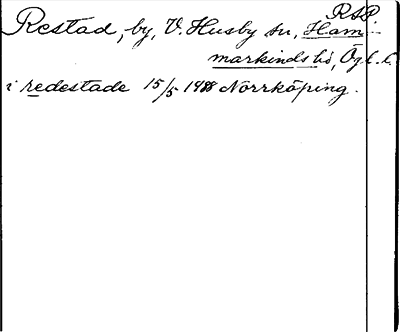 RSP
Restad, by, V. Husby sn, Ham-
markinds hd, Ögtl.
i redestade 15/5 1488 Norrköping.